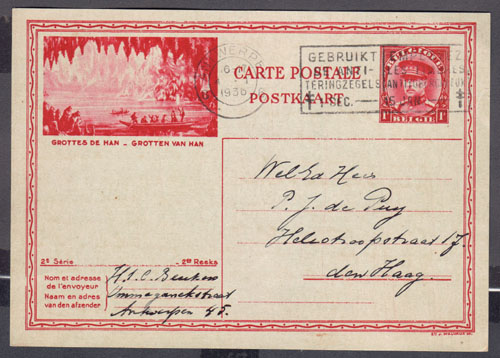 GEBRUIKT
TERINGZEGELS
1 DEC.
1936
CARTE POSTALE
POSTKAART
BELGIQUE
BELGIË
1F 1F
GROTTES DE HAN - GROTTEN VAN HAN
Wel Ed Heer
P. J. de Puy
Heliotroopstraat 17.
den Haag.
2e Série 2de Reeks
Nom et adresse
de l'envoyeur
Naam en adres
van den afzender
H.J.C. Beukers
Ommeganckstraat
Antwerpen 45.